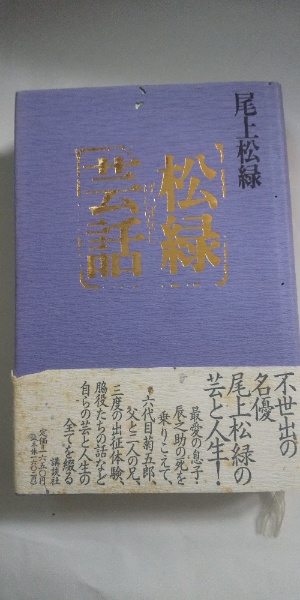 尾上松緑
松緑
芸話
不世出の
名優
尾上松緑の
芸と人生!
最愛の息子・
辰之助の死を
乗りこえて、
六代目菊五郎、
父と二人の兄、
三度の出征体験、
脇役たちの話など
自らの芸と人生の
全てを綴る
講談社
定価=一六五〇円